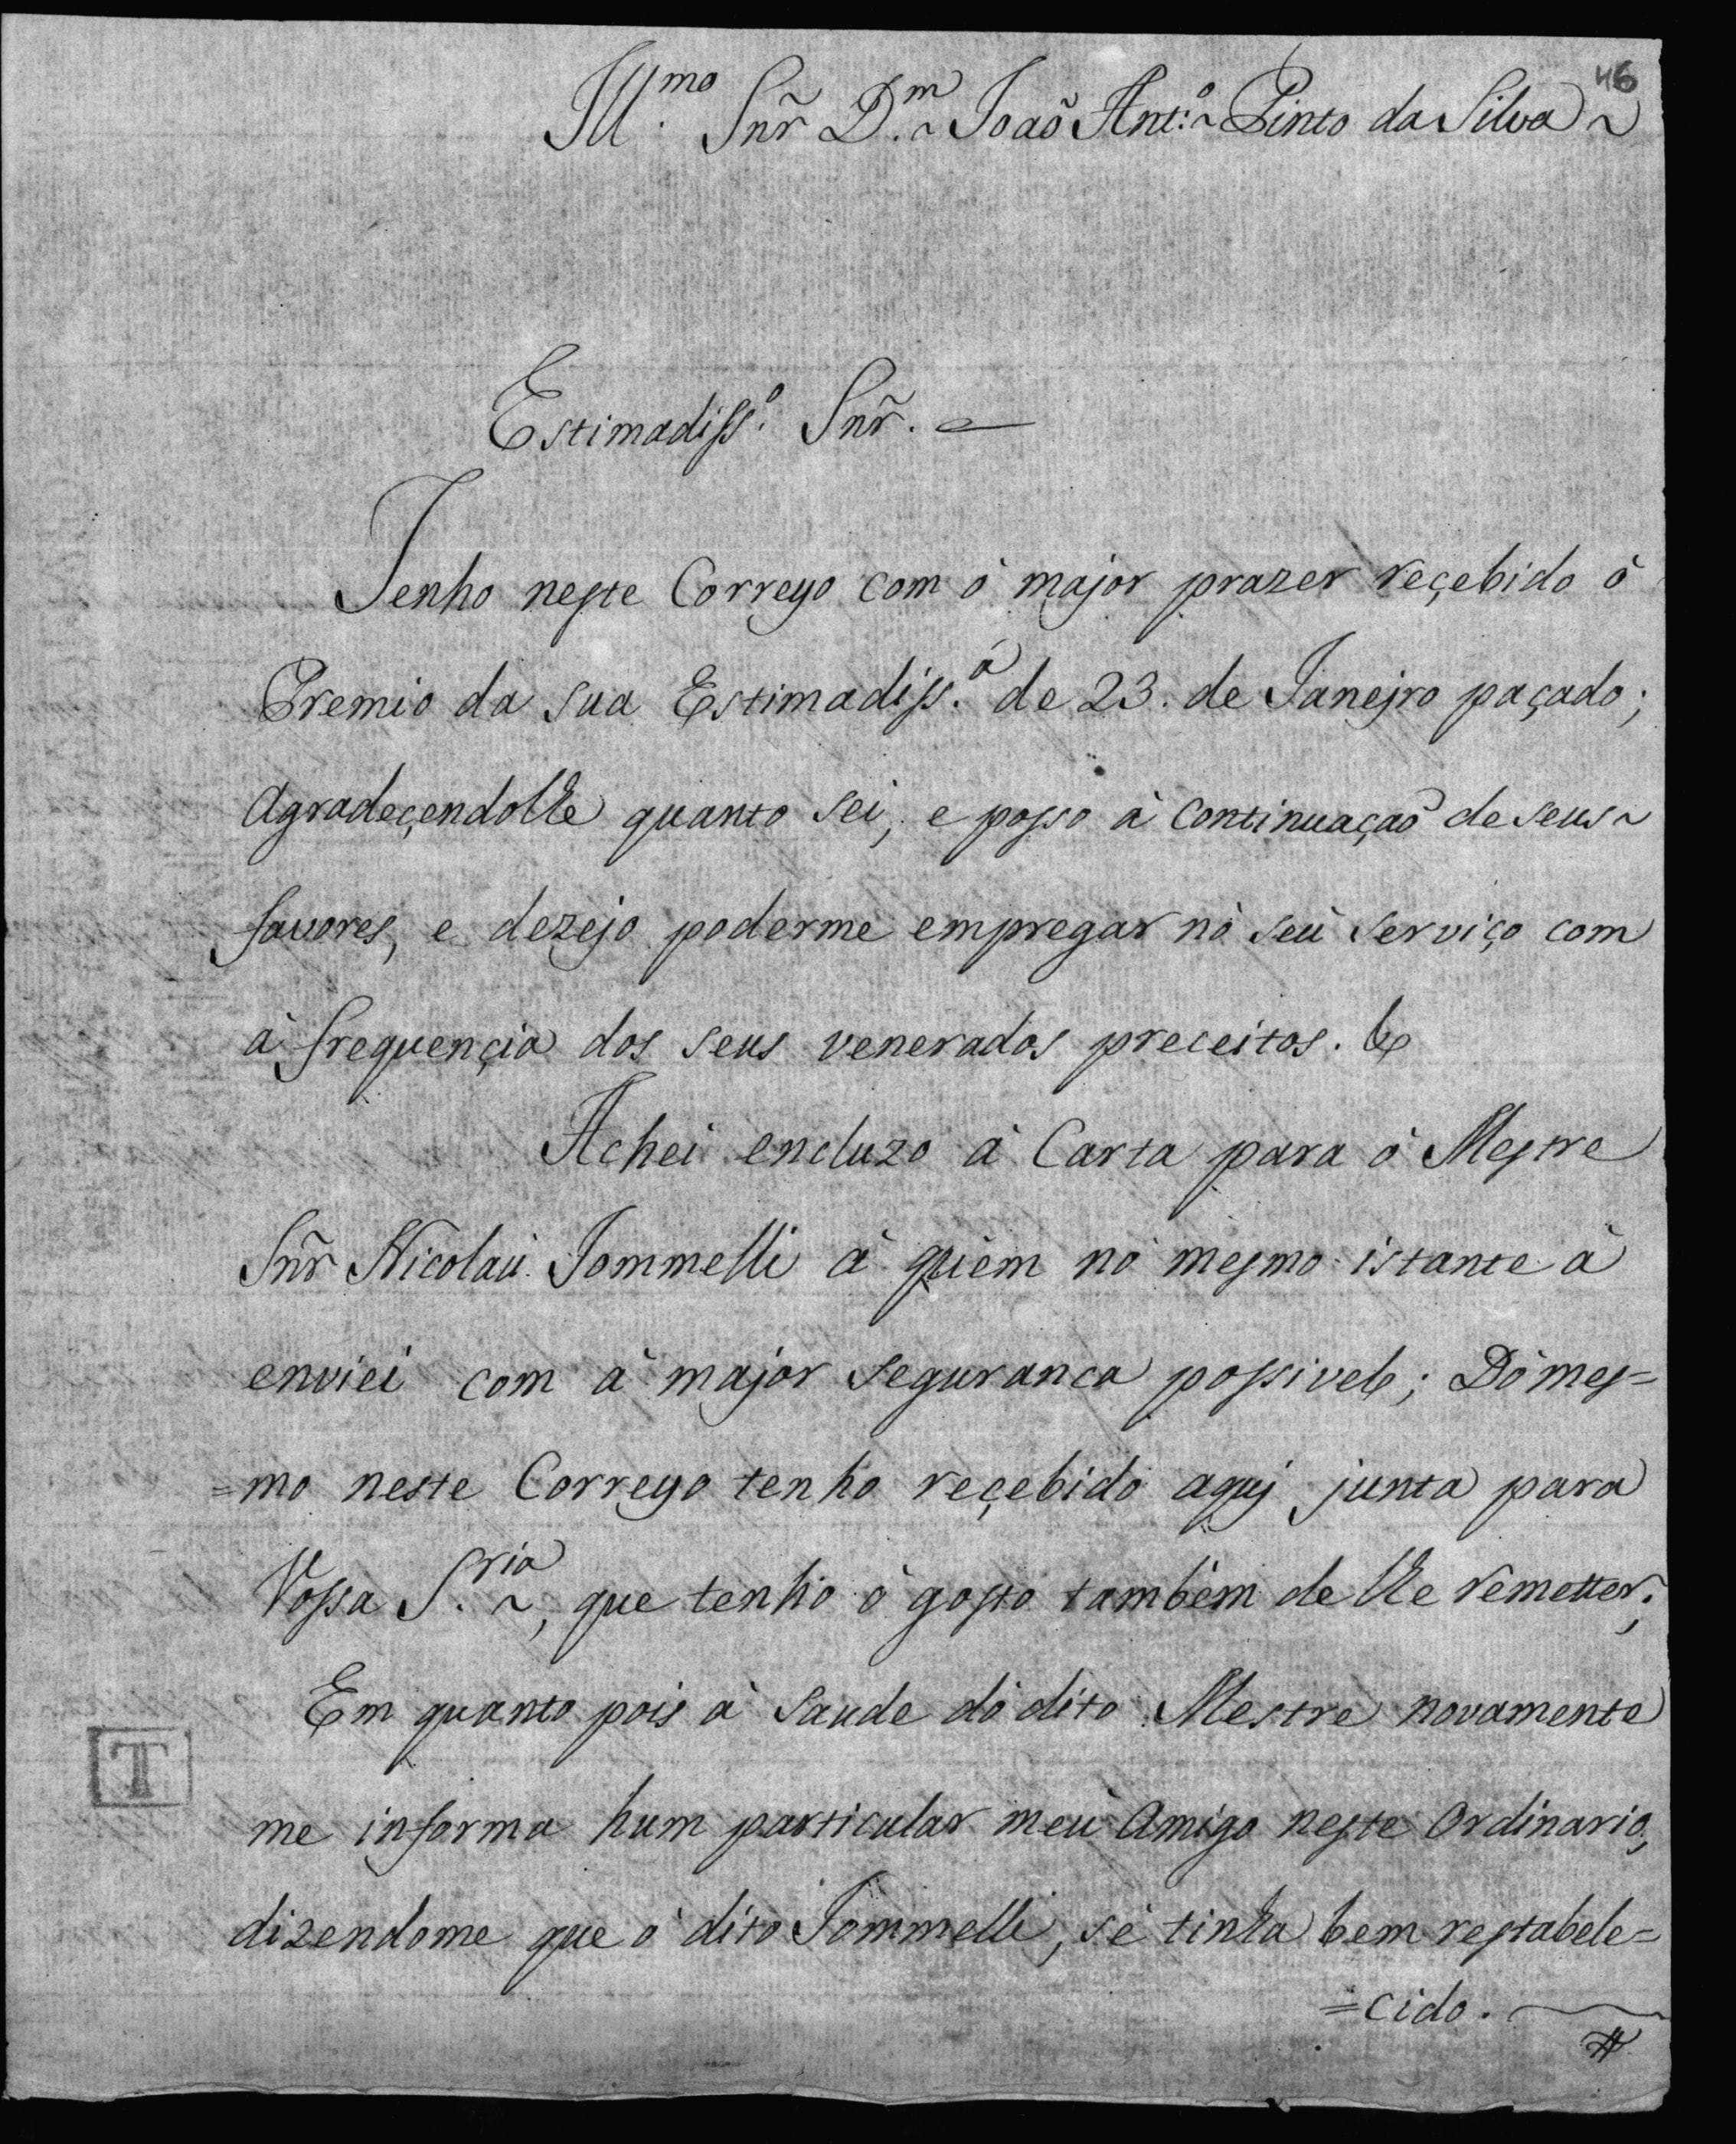 46
Ill.mo Snr̃ D.m~ Joaõ Ant.o~ Pinto da Silva~
Estimadiss.o Snr̃.
Tenho neste Correyo com ò major prazer reçebido ò
Premio da sua Estimadiss.a de 23. de Janejro paçado;
Agradeçendolhe quanto sei, e posso à continuaçaõ de seus~
favores, e dezejo poderme empregar nò seù serviço com
à frequençia dos seus venerados preceitos. &
Achei encluzo à Carta para ò Mestre
Snr̃ Nicolaù Jommelli à quèm nò mesmo istante à
enviei com à major seguranca possivel; Dò mes=
=mo neste Correyo tenho reçebido aquj junta para
Vossa S.ria~, que tenho ò gosto tambèm de lhe remetter;
Em quanto pois à saude dò dito Mestre novamente
me informa hum particular meù Amigo neste Ordinario,
dizendome que ò dito Jommelli, sè tinha bem restabele=
=cido.
T